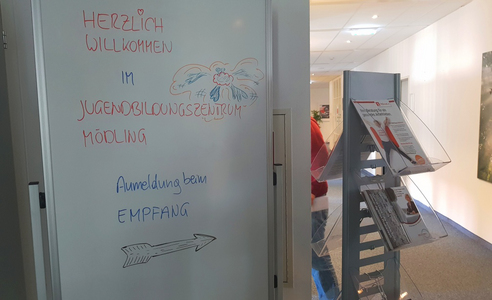 HERZLICH
WILLKOMMEN
IM
JUGENDBILDUNGSZENTRUM
MÖDLING
Anmeldung beim
EMPFANG